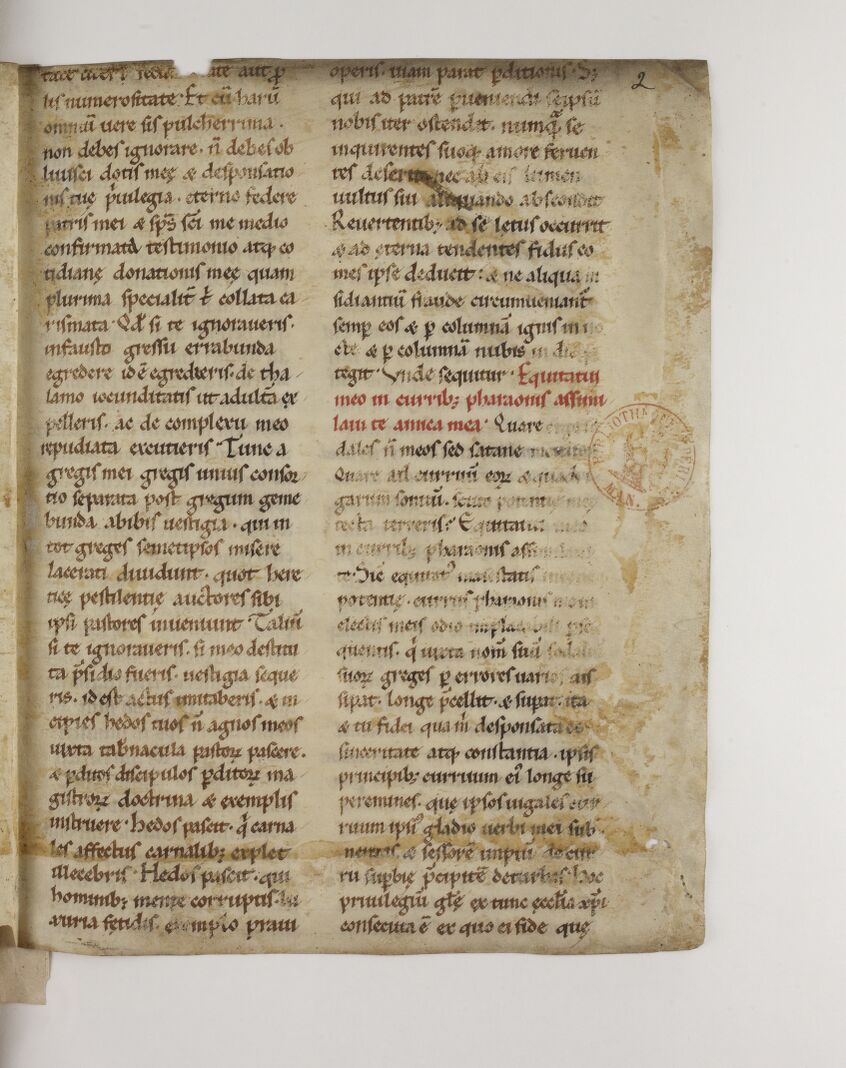 operis. uiam parat ꝑditionis. Sꝫ
lis numerositate. Et cū harū
omniū uere sis pulcherrima.
non debes ignorare. n̄ debes ob
liuisci dotis meę & desponsatio
nis tuę p̓uilegia. eterno federe
patris mei & sp̄s sc̄i me medio
confirmata testimonio atqꝫ co
tidianę donationis meę quam
plurima specialit̄ t̄ collata ca
rismata. Qd̄ si te ignoraueris.
infausto gressu errabunda
egredere id ē egredieris. de tha
lamo iocunditatis ut adultā ex
pelleris. ac de complexu meo
repudiata excutieris. Tunc a
gregis mei gregis unius consor
tio separata post gregum geme
bunda abibis uestigia. qui in
tot greges semetipsos misere
lacerati diuidunt. quot here
ticę pestilentię auctores sibi
ipsi pastores inueniunt. Taliū
si te ignoraueris. si meo destitu
ta p̄sidio fueris. uestigia seque
ris. id est actus imitaberis. & in
cipies hedos tuos n̄ agnos meos
iuxta tab̓nacula pastoꝝ pascere.
& ꝑditos discipulos ꝑditoꝝ ma
gistroꝝ doctrina & exemplis
instruere. Hedos pascit. q̓ carna
les affectus carnalibꝫ explet
illecebris. Hedos pascit. qui
hominibꝫ mente corruptis. lu
xuria fętidis. exemplo praui
2
qui ad patrē ꝑueniendi seipsū
nobis iter ostendit. numqͣ se
inquirentes suoqꝫ amore feruen
tes deserit. nec ab eis lumen
uultus sui aliquando abscondit
Reuertentibꝫ ad se letus occurrit
& ad ęterna tendentes fidus co
mes ipse deducit: & ne aliqua in
sidiantiū fraude circumueniant̄
semꝑ eos & ꝑ columnā ignis in no
cte & ꝑ columnā nubis in die
tegit. Vnde sequitur. Equitatui
meo in curribꝫ pharaonis assimi
laui te amica mea. Quare
dales n̄ meos sed satane
Quare ad curruū eoꝝ &
garum sonitū.
terreris? Equitatui meo
in curribꝫ pharaonis
te. Sic equitat᷒ maiestatis
potentię. curr᷒ pharaonis
electis meis odio implacabili ꝑse
quentis. q̓ iuxta nom̄ suū
suoꝝ greges ꝑ errores uarios dis
sipat. longe p̄cellit. & suꝑat. ita
& tu fidei qua m̓ desponsata es
sinceritate atqꝫ constantia. ipsis
principibꝫ curruum ei᷒ longe su
peremines. quę ipsos iugales cur
ruum ipsi᷒ gladio uerbi mei sub
& sessorē impiū de cur
ru suꝑbię p̄cipitē deturbas. Hoc
priuilegiū gl̄ę ex tunc ęcclīa xp̄i
consecuta ē ex quo ei fide quę